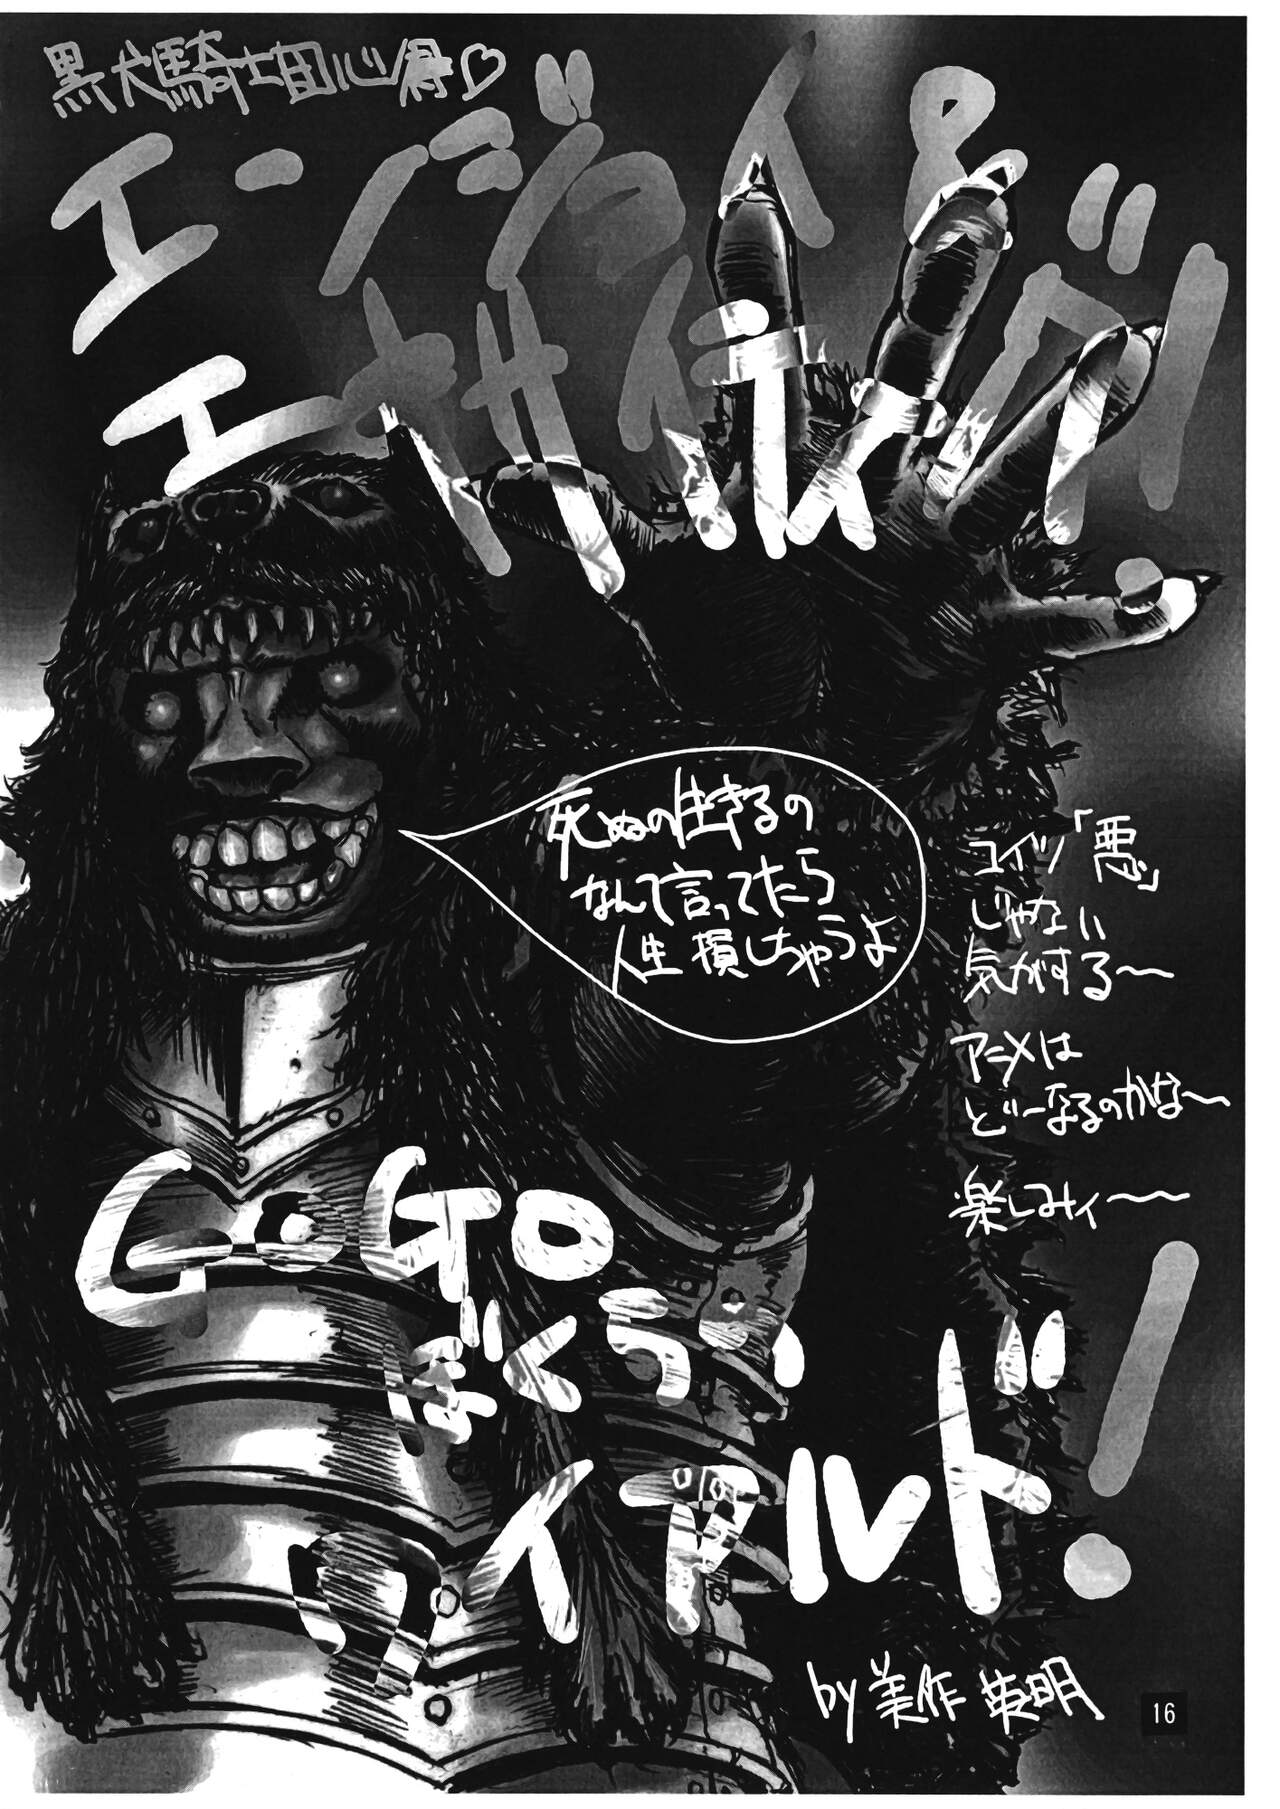 黒犬騎士団心得♡
エンジョイ&
エキサイティング!
死ぬの生きるの
なんて言ってたら
人生損しちゃうよ
コイツ「悪」
じゃない
気がする〜
アニメは
どーなるのかな〜
楽しみィ〜〜
GoGo
ぼくら、
ワイアルド!
by 美作 英明
16